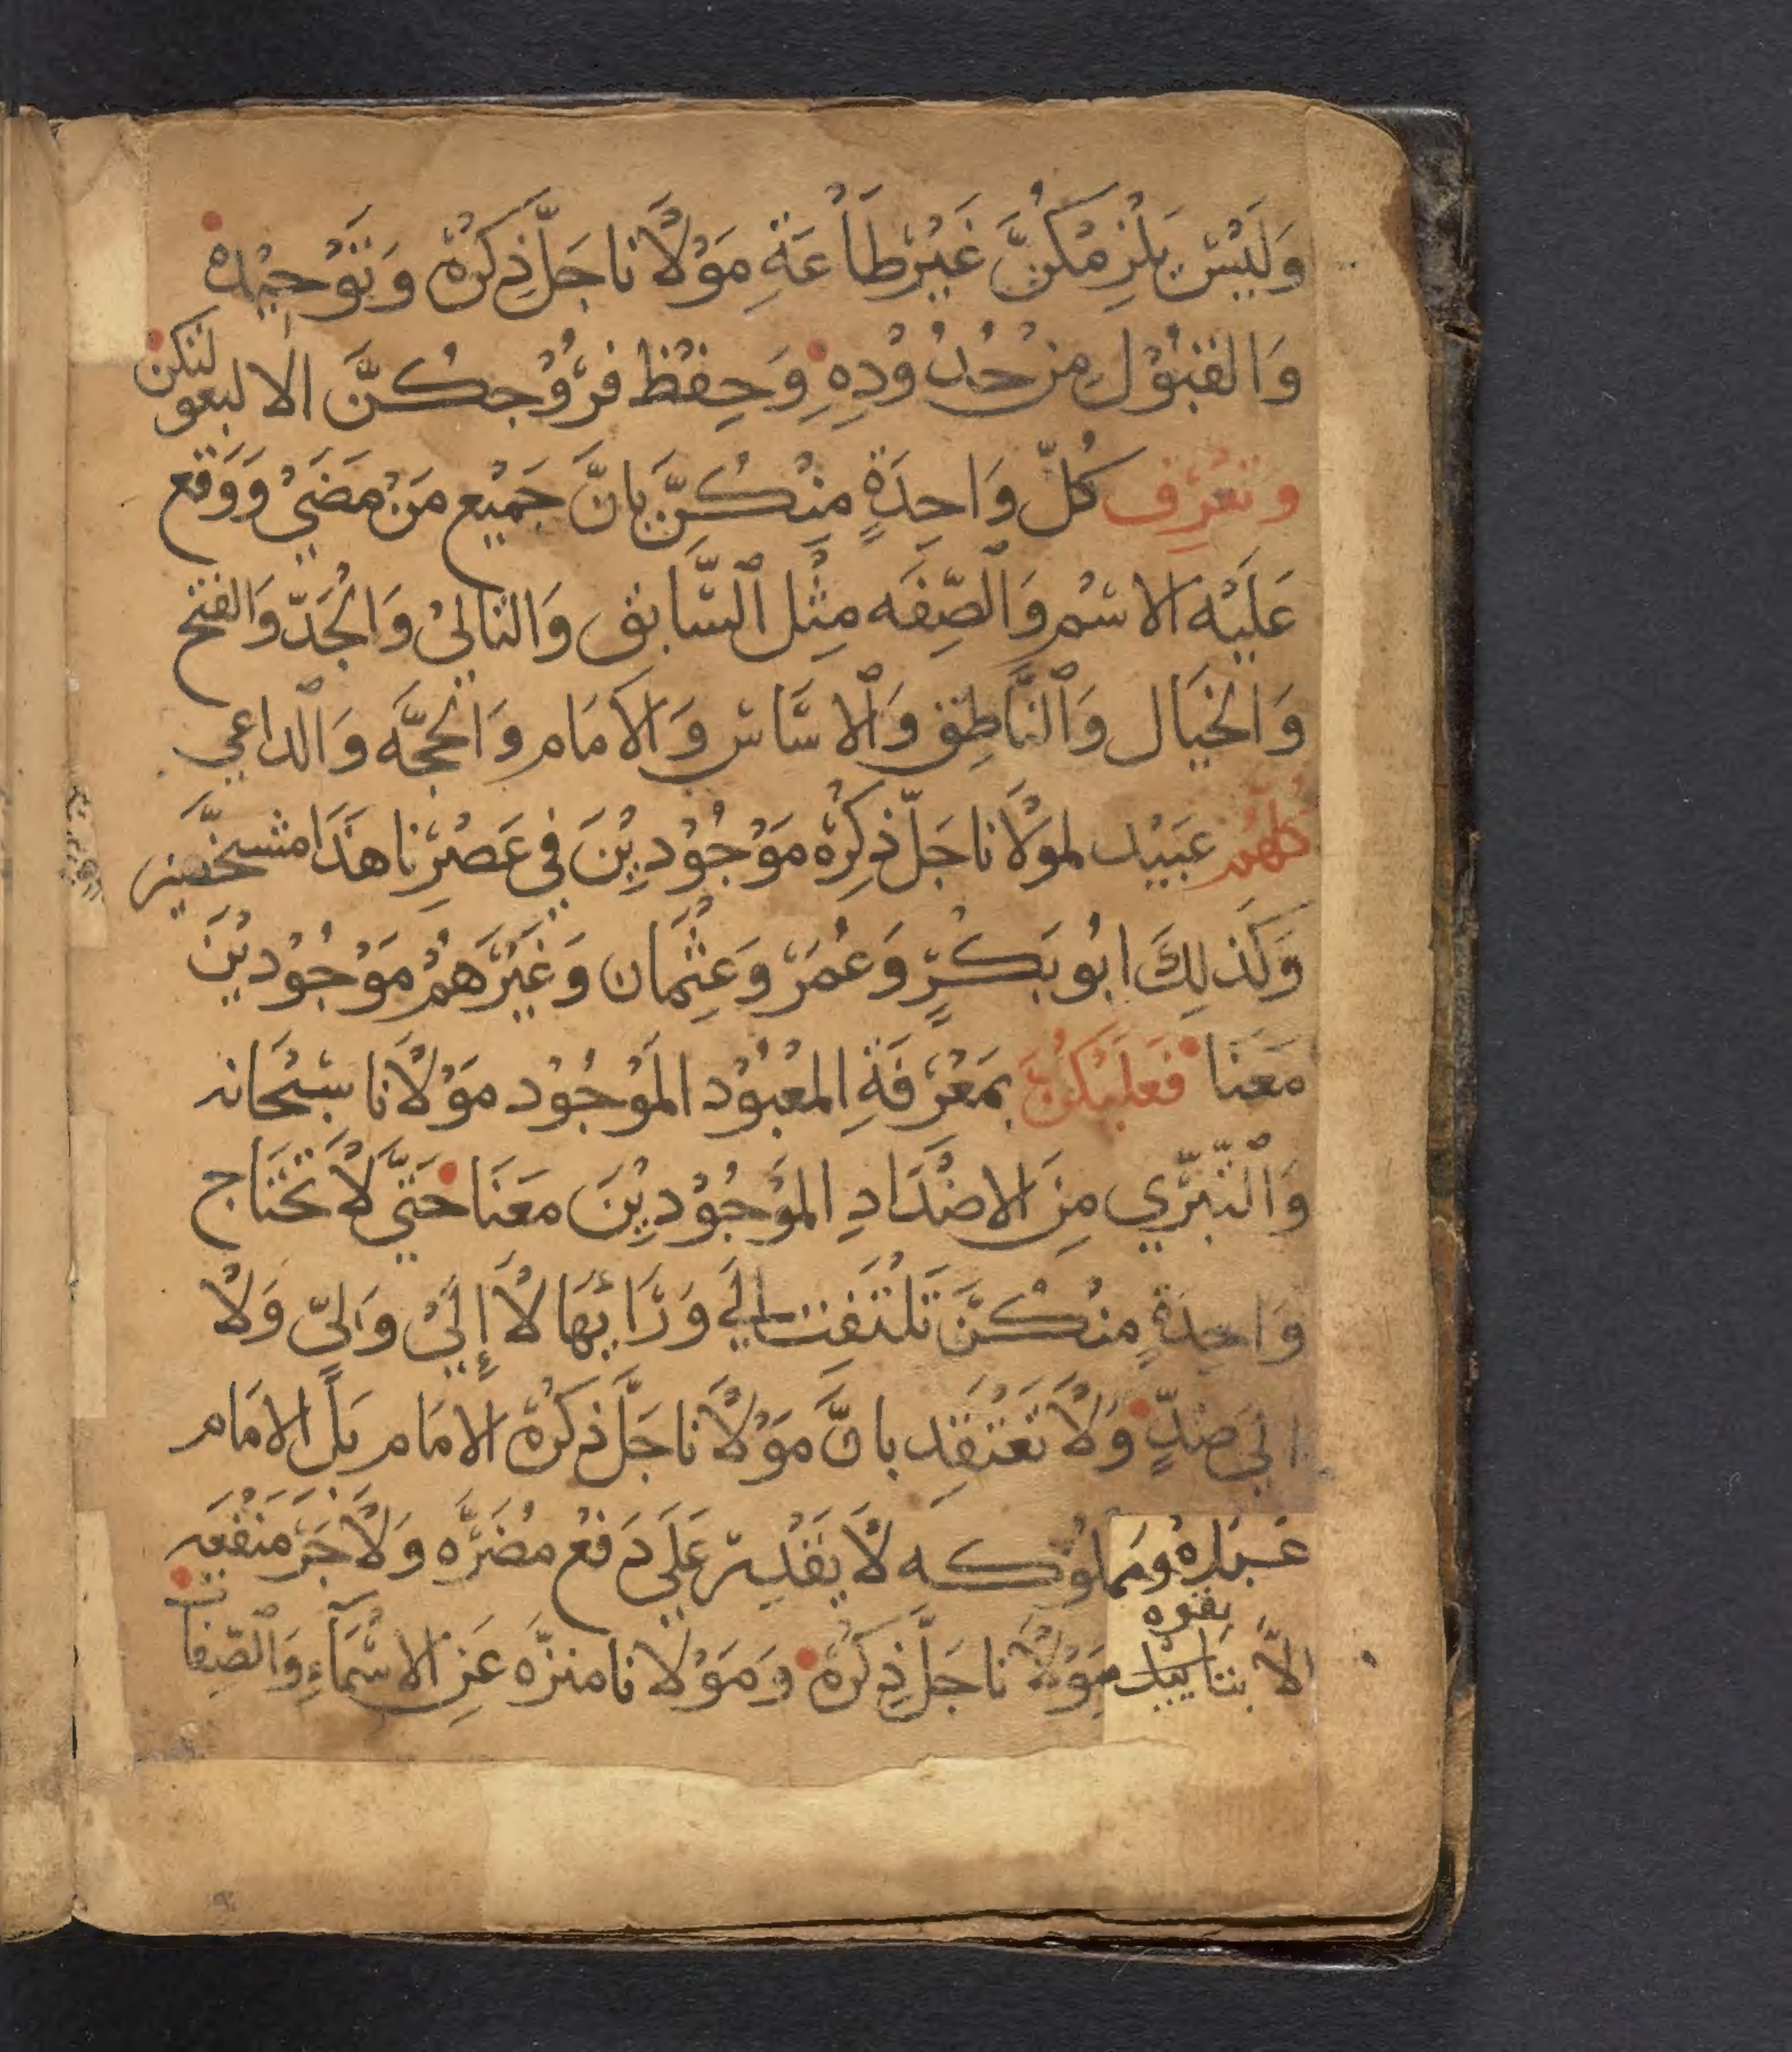 وَلَيْسَ يَلْزِمْكُنَّ غَيْرُ طَاْعَةِ مَوْلَانَا جَلَّ ذِكْرُهُ وَتَوْحِيْدِهِ
وَالقَبُوْلِ مِنْ حُدُوْدِهِ وَحِفْظ فُرُوْجِكُنَّ الا لبعولتكن
وتَعْرِف كُلّ وَاحِدَةٍ مِنْكُنَّ بِانَّ جَمِيْع مَنْ مَضَيْ وَوَقَع
عَلَيْهِ الاسْم وَالصِّفَه مِثْل السَّابِق وَالتاليْ وَالْجَدّ وَالفتح
وَالخَيَال وَالنَّاطِق وَالاسَّاس وَالاَمَام وَالحجَّه وَالداعي
كُلّهُم عَبَيْد لموَلَانا جَلّ ذِكِرُهُ مَوْجُوْدِيْنَ فِي عَصْرِنا هَذَا مشخَّصين
وَكَذلِكَ ابُو بَكْرٍ وَعُمَرْ وَعِثْمَان وَغَيْرَهُمْ مَوْجُوْدِيْنَ
مَعَنَا فَعَلَيْكُنَّ بِمَعْرَفَةِ المعْبُوْد المَوْجُوْد مَوْلَانا سبْحَانه
وَالتّبَرِّي مِنَ الاضْدَادِ المَوْجُوْدِيْنَ مَعَنَا حَتيَّ لَا تَحْتَاج
وَاحِدَةٍ مِنْكُنَّ تَلْتَفِت اليَ وَرَائِهَا لَا إِلَيْ وَلِيّ وَلَا
اليَ ضِدٍّ وَلَا تَعْتَقِد بانَّ مَوْلَانا جَلَّ ذكْرُهُ الامَام بَلِ الامَام
عَبْدُهُ ومَملُوْكه لَا يَقْدِر عَلَيَ دَفْع مضَرَّه وَلَا جَرّ مَنْفَعَه
الاّ بتاييد يقوه مَوْلَانا جَلَّ ذِكْرُهُ وَمَوْلَانا منزَّه عَنِ الاسْمَآءِ وَالصِّفات